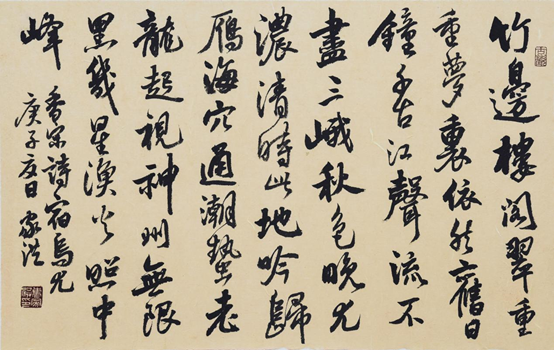 竹邊樓閣翠重
重夢裏依然舊日
鐘千古江聲流不
盡三峨秋色晚尤
濃清時此地吟歸
雁海穴通潮蟄老
龍起視神州無限
黑幾星漁火照中
峰
香宋詩宿烏尤
庚子夏日